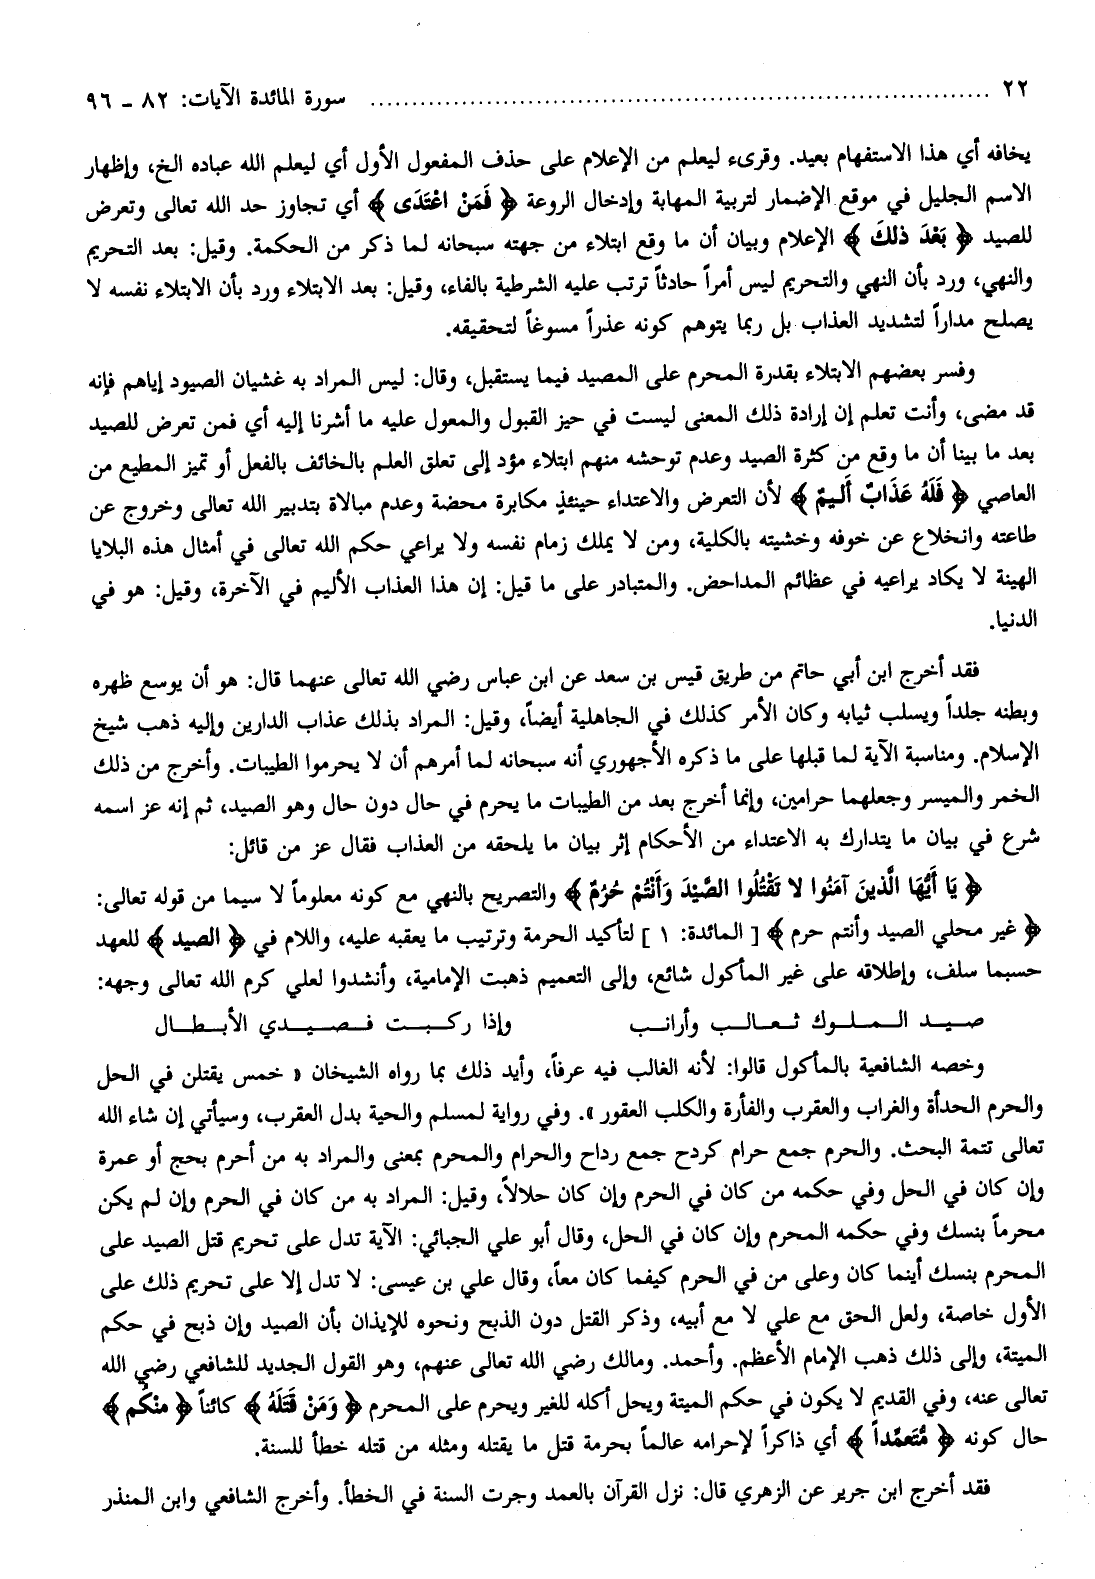 ٢٢ ........................................................................... سورة المائدة الآيات: ٨٢ - ٩٦
يخافه أي هذا الاستفهام بعيد. وقرىء ليعلم من الإعلام على حذف المفعول الأول أي ليعلم الله عباده الخ، وإظهار
الاسم الجليل في موقع الإضمار لتربية المهابة وإدخال الروعة ﴿ فَمَنْ اعْتَدَى ﴾ أي تجاوز حد الله تعالى وتعرض
للصيد ﴿ بَعْدَ ذلكَ ﴾ الإعلام وبيان أن ما وقع ابتلاء من جهته سبحانه لما ذكر من الحكمة. وقيل: بعد التحريم
والنهي، ورد بأن النهي والتحريم ليس أمراً حادثاً ترتب عليه الشرطية بالفاء، وقيل: بعد الابتلاء ورد بأن الابتلاء نفسه لا
يصلح مداراً لتشديد العذاب بل ربما يتوهم كونه عذراً مسوغاً لتحقيقه.
وفسر بعضهم الابتلاء بقدرة المحرم على المصيد فيما يستقبل، وقال: ليس المراد به غشيان الصيود إياهم فإنه
قد مضى، وأنت تعلم إن إرادة ذلك المعنى ليست في حيز القبول والمعول عليه ما أشرنا إليه أي فمن تعرض للصيد
بعد ما بينا أن ما وقع من كثرة الصيد وعدم توحشه منهم ابتلاء مؤد إلى تعلق العلم بالخائف بالفعل أو تميز المطيع من
العاصي ﴿ فَلَهُ عَذَابٌ أَليمٌ ﴾ لأن التعرض والاعتداء حينئذٍ مكابرة محضة وعدم مبالاة بتدبير الله تعالى وخروج عن
طاعته وانخلاع عن خوفه وخشيته بالكلية، ومن لا يملك زمام نفسه ولا يراعي حكم الله تعالى في أمثال هذه البلايا
الهينة لا يكاد يراعيه في عظائم المداحض. والمتبادر على ما قيل: إن هذا العذاب الأليم في الآخرة، وقيل: هو في
الدنيا.
فقد أخرج ابن أبي حاتم من طريق قيس بن سعد عن ابن عباس رضي الله تعالى عنهما قال: هو أن يوسع ظهره
وبطنه جلداً ويسلب ثيابه وكان الأمر كذلك في الجاهلية أيضاً، وقيل: المراد بذلك عذاب الدارين وإليه ذهب شيخ
الإسلام. ومناسبة الآية لما قبلها على ما ذكره الأجهوري أنه سبحانه لما أمرهم أن لا يحرموا الطيبات. وأخرج من ذلك
الخمر والميسر وجعلهما حرامين، وإنما أخرج بعد من الطيبات ما يحرم في حال دون حال وهو الصيد، ثم إنه عز اسمه
شرع في بيان ما يتدارك به الاعتداء من الأحكام إثر بيان ما يلحقه من العذاب فقال عز من قائل:
﴿ يَا أَيُّهَا الَّذينَ آمَنُوا لا تَقْتُلُوا الصَّيْدَ وَأَنْتُمْ حُرُمٌ ﴾ والتصريح بالنهي مع كونه معلوماً لا سيما من قوله تعالى:
﴿ غير محلي الصيد وأنتم حرم ﴾ [ المائدة: ١ ] لتأكيد الحرمة وترتيب ما يعقبه عليه، واللام في ﴿ الصيد ﴾ للعهد
حسبما سلف، وإطلاقه على غير المأكول شائع، وإلى التعميم ذهبت الإمامية، وأنشدوا لعلي كرم الله تعالى وجهه:
صيد الملوك ثعالب وأرانب وإذا ركبت فصيدي الأبطال
وخصه الشافعية بالمأكول قالوا: لأنه الغالب فيه عرفاً، وأيد ذلك بما رواه الشيخان « خمس يقتلن في الحل
والحرم الحدأة والغراب والعقرب والفأرة والكلب العقور ». وفي رواية لمسلم والحية بدل العقرب، وسيأتي إن شاء الله
تعالى تتمة البحث. والحرم جمع حرام كردح جمع رداح والحرام والمحرم بمعنى والمراد به من أحرم بحج أو عمرة
وإن كان في الحل وفي حكمه من كان في الحرم وإن كان حلالاً، وقيل: المراد به من كان في الحرم وإن لم يكن
محرماً بنسك وفي حكمه المحرم وإن كان في الحل، وقال أبو علي الجبائي: الآية تدل على تحريم قتل الصيد على
المحرم بنسك أينما كان وعلى من في الحرم كيفما كان معاً، وقال علي بن عيسى: لا تدل إلا على تحريم ذلك على
الأول خاصة، ولعل الحق مع علي لا مع أبيه، وذكر القتل دون الذبح ونحوه للإيذان بأن الصيد وإن ذبح في حكم
الميتة، وإلى ذلك ذهب الإمام الأعظم. وأحمد. ومالك رضي الله تعالى عنهم، وهو القول الجديد للشافعي رضي الله
تعالى عنه، وفي القديم لا يكون في حكم الميتة ويحل أكله للغير ويحرم على المحرم ﴿ وَمَنْ قَتَلَهُ ﴾ كائناً ﴿ منْكُم ﴾
حال كونه ﴿ مُتَعمِّداً ﴾ أي ذاكراً لإحرامه عالماً بحرمة قتل ما يقتله ومثله من قتله خطأ للسنة.
فقد أخرج ابن جرير عن الزهري قال: نزل القرآن بالعمد وجرت السنة في الخطأ. وأخرج الشافعي وابن المنذر